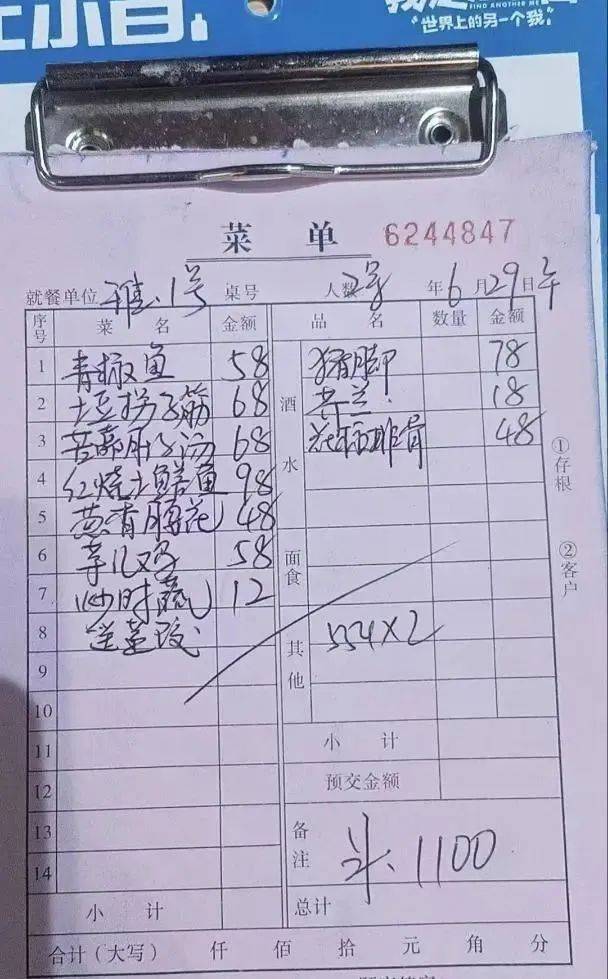 FIND ANOTHER ME
世界上的另一个我
菜 单 6244847
就餐单位 雅.1号 桌号 人数 2号 年 6 月 29 日 午
序号 菜 名 金额 品 名 数量 金额
1 青椒鱼 58 酒水 猪脚 78
2 土豆拐子筋 68 18
3 68 排骨 48
4 红烧土鳝鱼 98
5 葱香腰花 48
6 58 面食
7 炒时蔬 12
8 其他 554×2
9
10
11 小 计
12 预交金额
13 备注 1100
14
小 计 总计
合计(大写) 仟 佰 拾 元 角 分
①存根
②客户